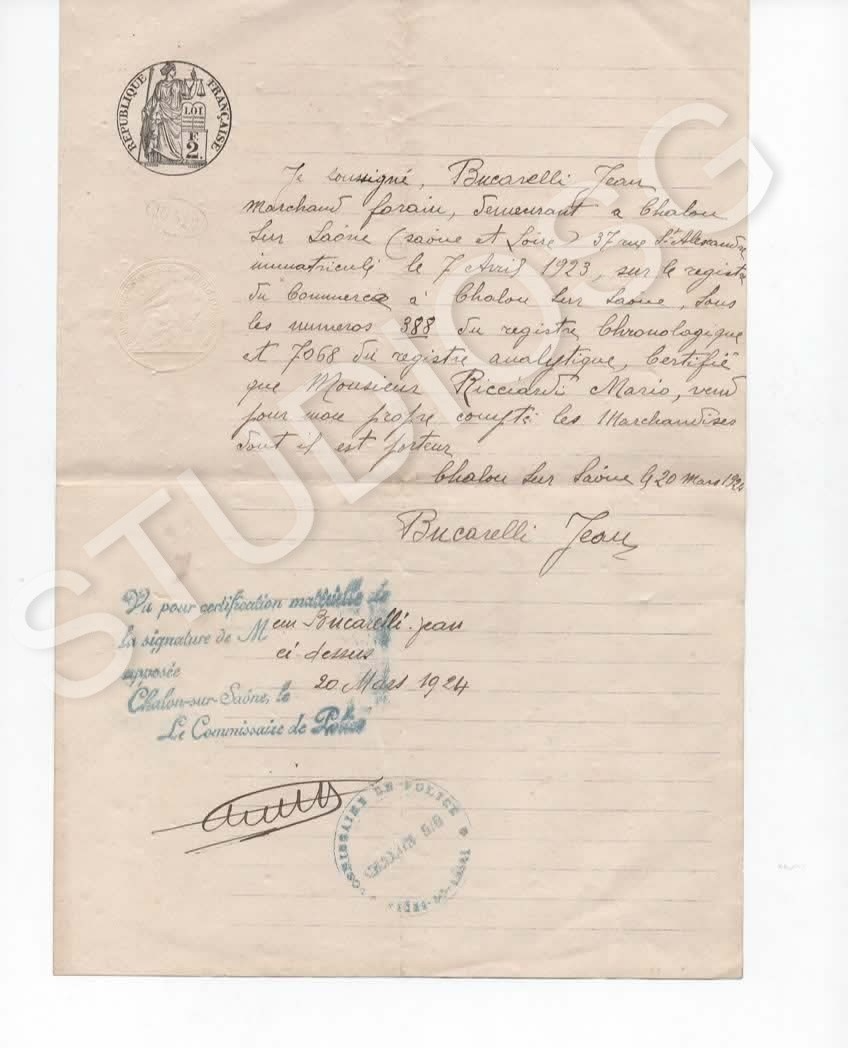 RÉPUBLIQUE FRANÇAISE
LOI
F
2.
Je soussigné, Bucarelli Jean
marchand forain, demeurant à Chalon
sur Saône (saône et Loire) 37 rue St Alexandre
immatriculé le 7 Avril 1923, sur le registre
du Commerce à Chalon sur Saône, sous
les numeros 388 du registre Chronologique
et 7068 du registre analytique, Certifie
que Monsieur Ricciardi Mario, vend
pour mon propre compte les Marchandises
dont il est porteur
Chalon sur Saône le 20 mars 1924
Bucarelli Jean
Vu pour certification matérielle de
la signature de M eur Bucarelli jean
ci dessus
apposée
Chalon-sur-Saône, le 20 Mars 1924
Le Commissaire de Police
COMMISSAIRE DE POLICE
STUDIOSG